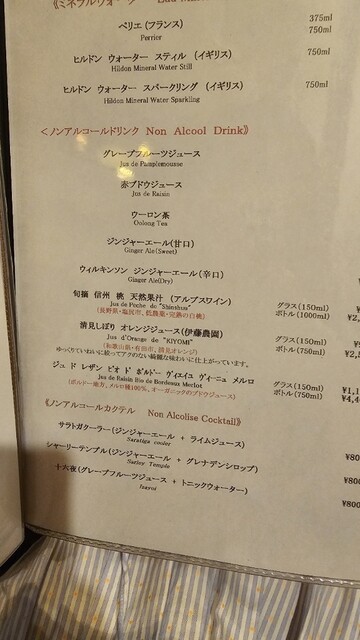 《ミネラルウォーター Eau Min
ペリエ(フランス) 375ml
Perrier 750ml
ヒルドン ウォーター スティル (イギリス) 750ml
Hildon Mineral Water Still
ヒルドン ウォーター スパークリング (イギリス) 750ml
Hildon Mineral Water Sparkling
<ノンアルコールドリンク Non Alcool Drink》
グレープフルーツジュース
Jus de Pamplemousse
赤ブドウジュース
Jus de Raisin
ウーロン茶
Oolong Tea
ジンジャーエール(甘口)
Ginger Ale(Sweet)
ウィルキンソン ジンジャーエール(辛口)
Giager Ale(Dry)
旬摘 信州 桃 天然果汁 (アルプスワイン) グラス(150ml) ¥
Jus de Peche de "Shinshuu" ボトル(1000ml) ¥2,
(長野県・塩尻市、低農薬・完熟の白桃)
清見しぼり オレンジジュース(伊藤農園) グラス(150ml)
Jus d'Orange de "KIYOMI" ボトル(750ml) ¥2,
(和歌山県・有田市、清見オレンジ)
ゆっくりていねいに絞ってアクのない綺麗な味わいに仕上がっています。
ジュ ド レザン ビオ ド ボルドー ヴィエイユ ヴィーニュ メルロ グラス(150ml) ¥1,1
Jus de Raisin Bio de Bordeaux Merlot ボトル(750ml) ¥4,4
(ボルドー地方、メルロ種100%、オーガニックのブドウジュース)
《ノンアルコールカクテル Non Alcolise Cocktail》
サラトガクーラー(ジンジャーエール + ライムジュース) ¥80
Saratiga cooler
シャーリーテンプル(ジンジャーエール + グレナデンシロップ) ¥800
Sarley Temple
十六夜(グレープフルーツジュース + トニックウォーター) ¥800
Isayoi